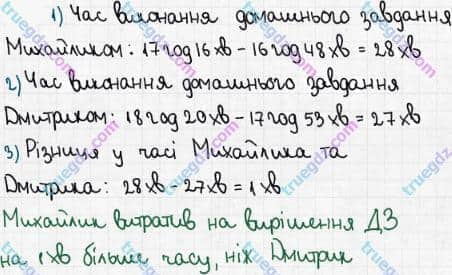 1) Час виконання домашнього завдання
Михайликом: 17 год 16 хв - 16 год 48 хв = 28 хв
2) Час виконання домашнього завдання
Дмитриком: 18 год 20 хв - 17 год 53 хв = 27 хв
3) Різниця у часі Михайлика та
Дмитрика: 28 хв - 27 хв = 1 хв
Михайлик витратив на вирішення ДЗ
на 1 хв більше часу, ніж Дмитрик